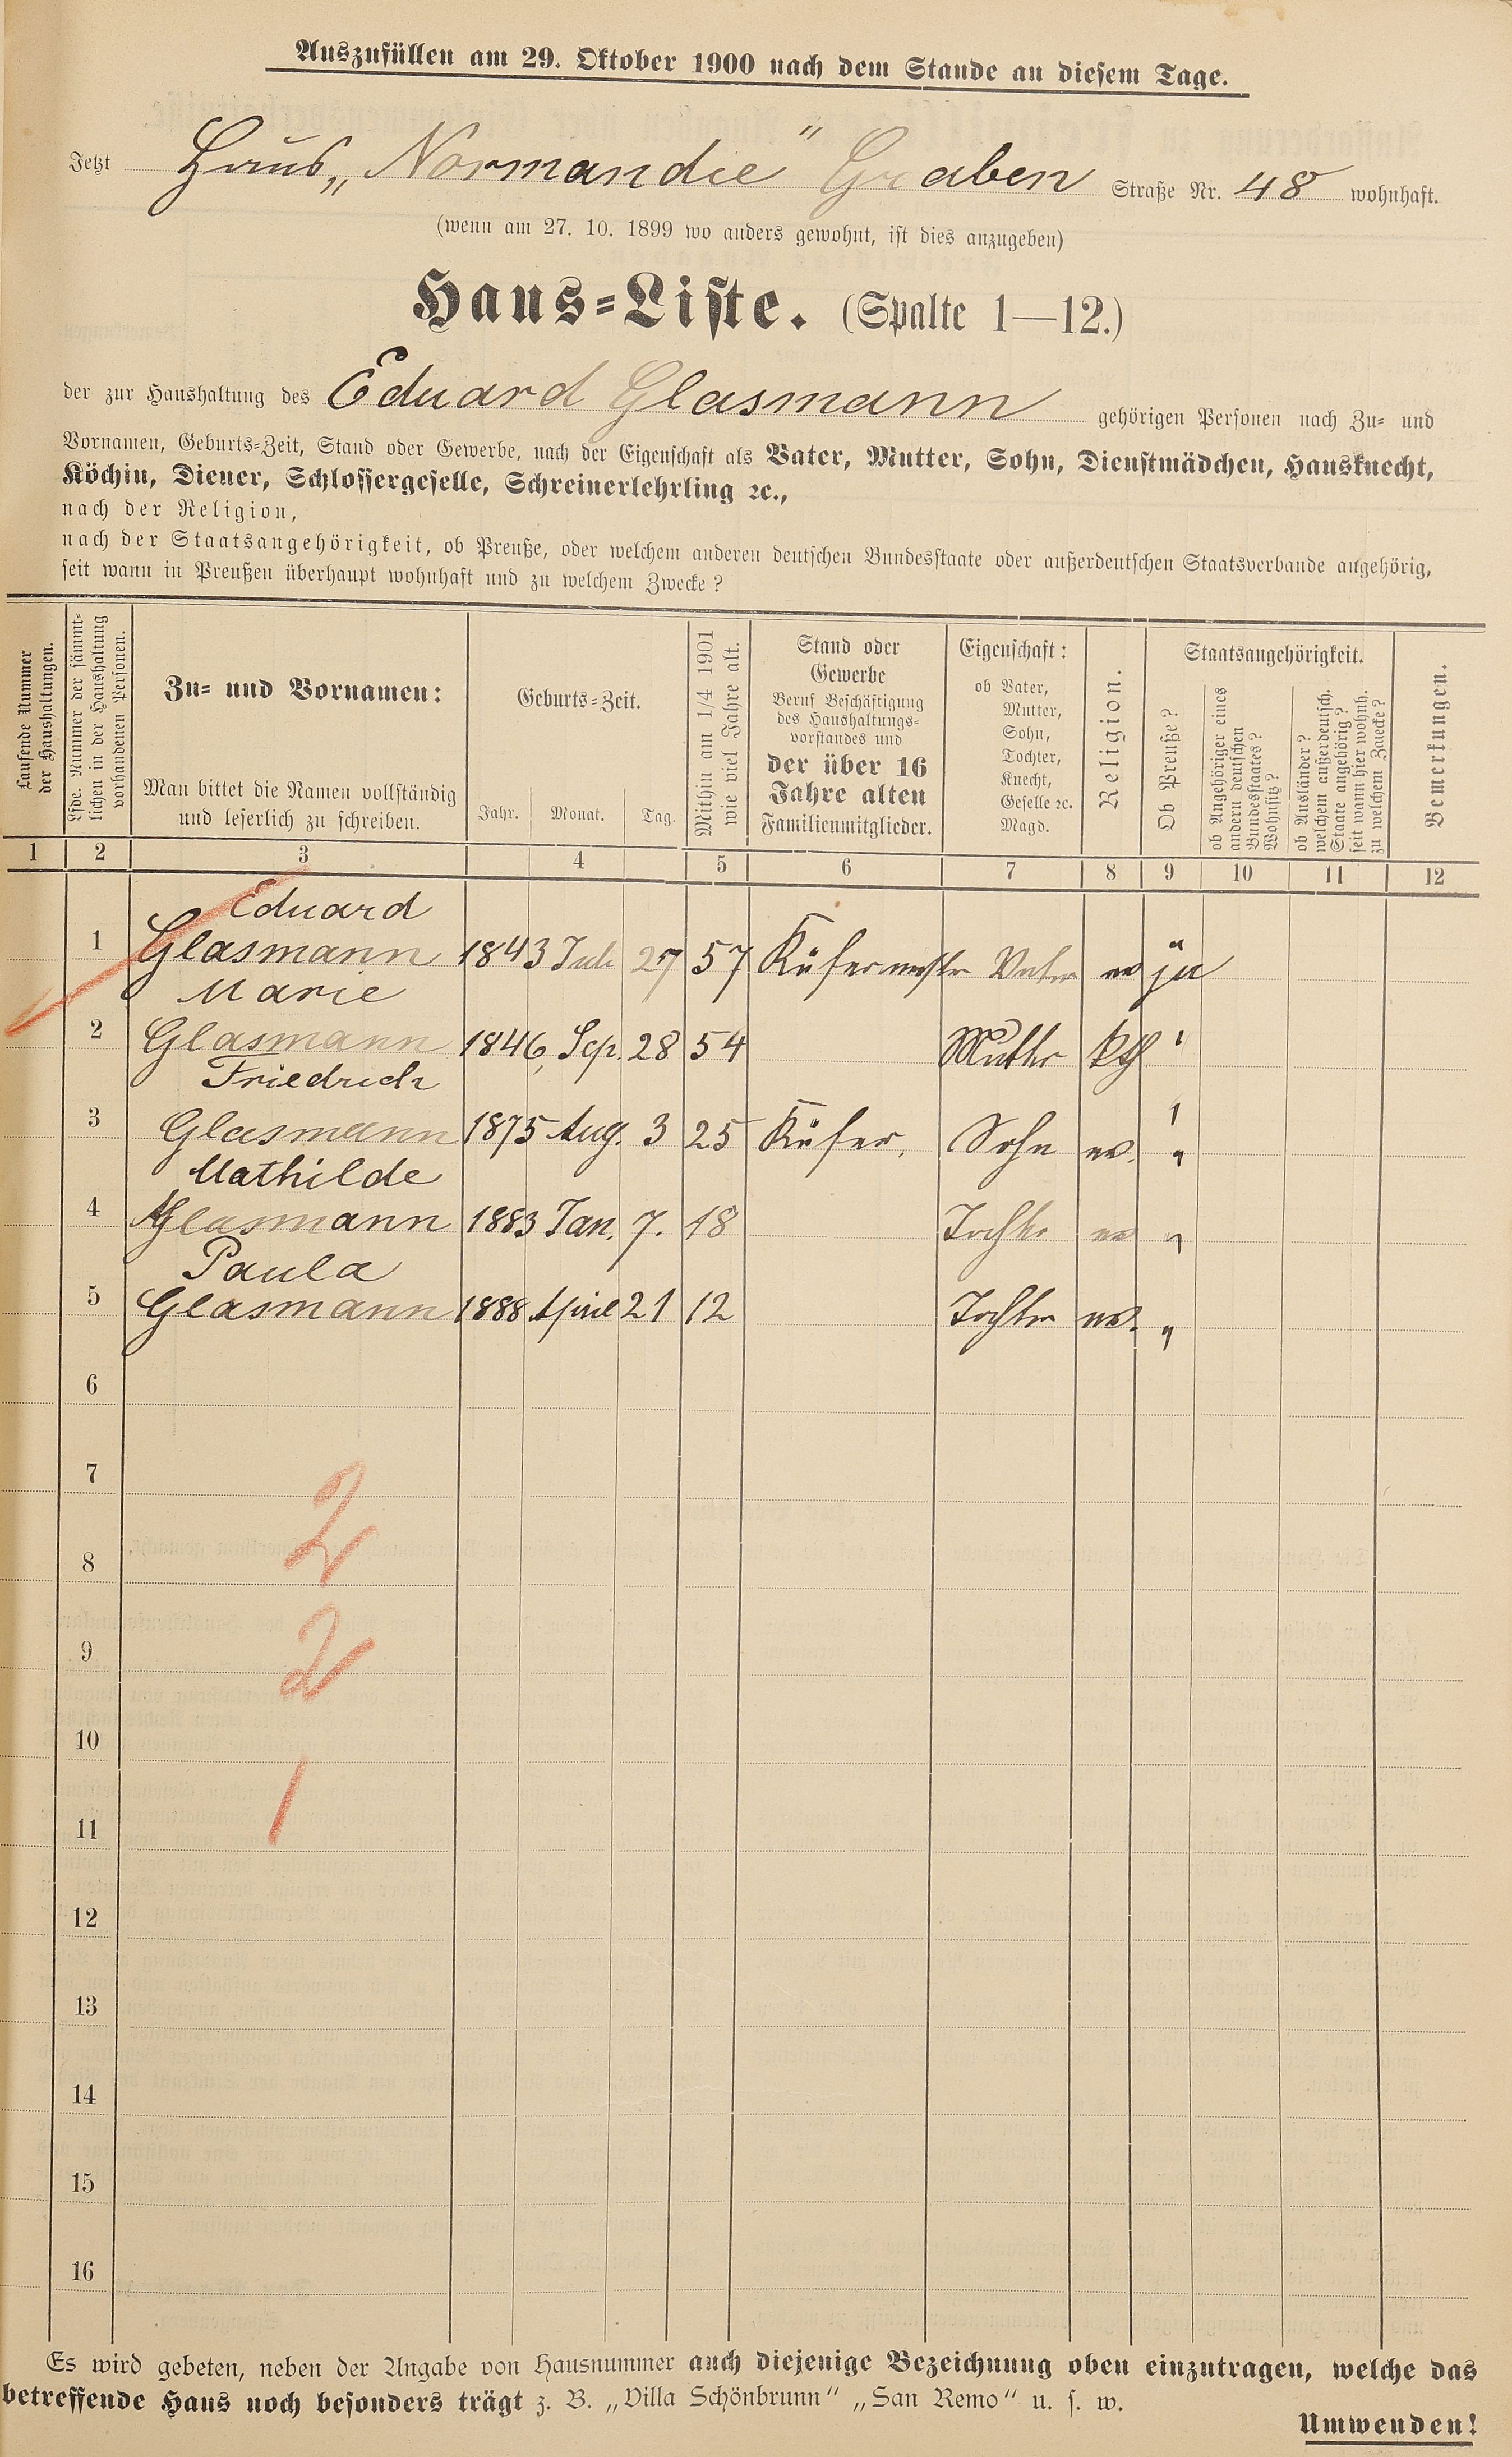 Auszufüllen am 29. Oktober 1900 nach dem Stande an diesem Tage.
Jetzt Haus „Normandie“ Graben Straße Nr. 48 wohnhaft.
(wenn am 27. 10. 1899 wo anders gewohnt, ist dies anzugeben)
Haus-Liste. (Spalte 1—12.)
der zur Haushaltung des Eduard Glasmann gehörigen Personen nach Zu- und
Vornamen, Geburts-Zeit, Stand oder Gewerbe, nach der Eigenschaft als Vater, Mutter, Sohn, Dienstmädchen, Hausknecht,
Köchin, Diener, Schlossergeselle, Schreinerlehrling ꝛc.,
nach der Religion,
nach der Staatsangehörigkeit, ob Preuße, oder welchem anderen deutschen Bundesstaate oder außerdeutschen Staatsverbande angehörig,
seit wann in Preußen überhaupt wohnhaft und zu welchem Zwecke?
Laufende Nummer
der Haushaltungen.
Lfde. Nummer der sämmt-
lichen in der Haushaltung
vorhandenen Personen.
Zu- und Vornamen:
Man bittet die Namen vollständig
und leserlich zu schreiben.
Geburts-Zeit.
Jahr. Monat. Tag.
Mithin am 1/4 1901
wie viel Jahre alt.
Stand oder
Gewerbe
Beruf Beschäftigung
des Haushaltungs-
vorstandes und
der über 16
Jahre alten
Familienmitglieder.
Eigenschaft:
ob Vater,
Mutter,
Sohn,
Tochter,
Knecht,
Geselle ꝛc.
Magd.
Religion.
Staatsangehörigkeit.
Ob Preuße?
ob Angehöriger eines
andern deutschen
Bundesstaates?
Wohnsitz?
ob Ausländer?
welchem außerdeutsch.
Staate angehörig?
seit wann hier wohnh.
zu welchem Zwecke?
Bemerkungen.
1 2 3 4 5 6 7 8 9 10 11 12
Eduard
1 Glasmann 1843 Juli 27 57 Küfermeister Vater ev ja
Marie
2 Glasmann 1846 Sep. 28 54 Mutter kth "
Friedrich
3 Glasmann 1875 Aug. 3 25 Küfer. Sohn ev. "
Mathilde
4 Glasmann 1883 Jan. 7. 18 Tochter ev "
Paula
5 Glasmann 1888 April 21 12 Tochter ev. "
6
7
2
8
9 2
10
11 1
12
13
14
15
16
Es wird gebeten, neben der Angabe von Hausnummer auch diejenige Bezeichnung oben einzutragen, welche das
betreffende Haus noch besonders trägt z. B. „Villa Schönbrunn“ „San Remo“ u. s. w.
Umwenden!